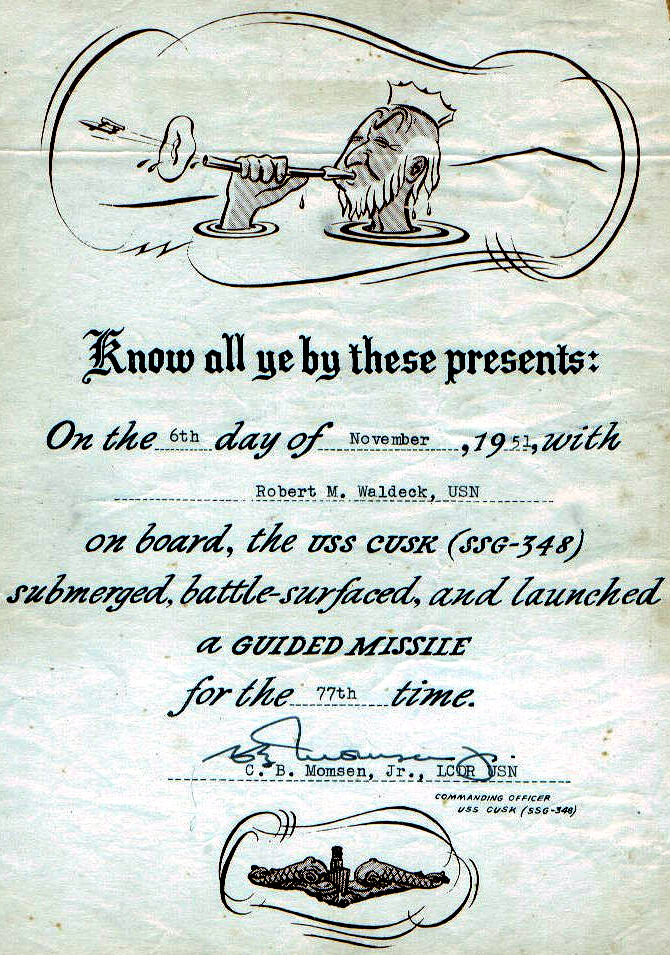 Know all ye by these presents:
On the 6th day of November, 1951, with
Robert M. Waldeck, USN
on board, the USS CUSK (SSG-348)
submerged, battle-surfaced, and launched
a GUIDED MISSILE
for the 77th time.
C. B. Momsen, Jr., LCDR USN
COMMANDING OFFICER
USS CUSK (SSG-348)